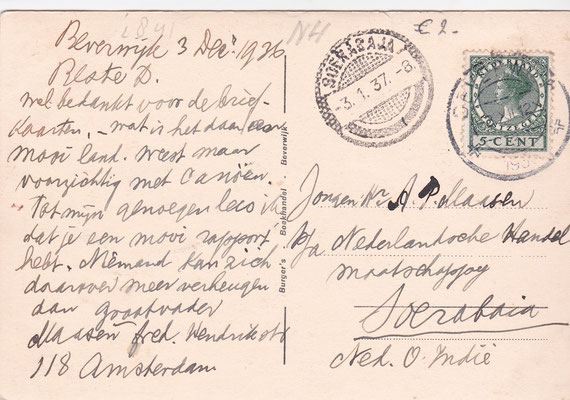 LB41
NH
€ 2.-
Beverwijk 3 Dec. 1936
Beste D.
wel bedankt voor de brief-
kaarten, - wat is het daar een
mooi land. Weest maar
voorzichtig met Canoën
Tot mijn genoegen lees ik
dat je een mooi rapport
hebt. Niemand kan zich
daarover meer verheugen
dan grootvader
Maasen Fred. Hendrikstr
118 Amsterdam
Burger's Boekhandel - Beverwijk
SOERABAJA
3.1.37.-8
NEDERLAND
5-CENT
193
Jongen Hr A.P. Maasen
p/a Nederlandsche Handel
maatschappy
Soerabaia
Ned. O. Indië